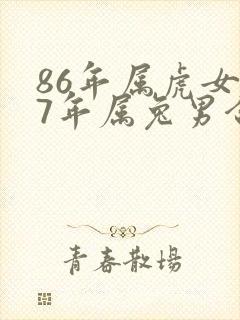 86年属虎女
7年属兔男
青春散场